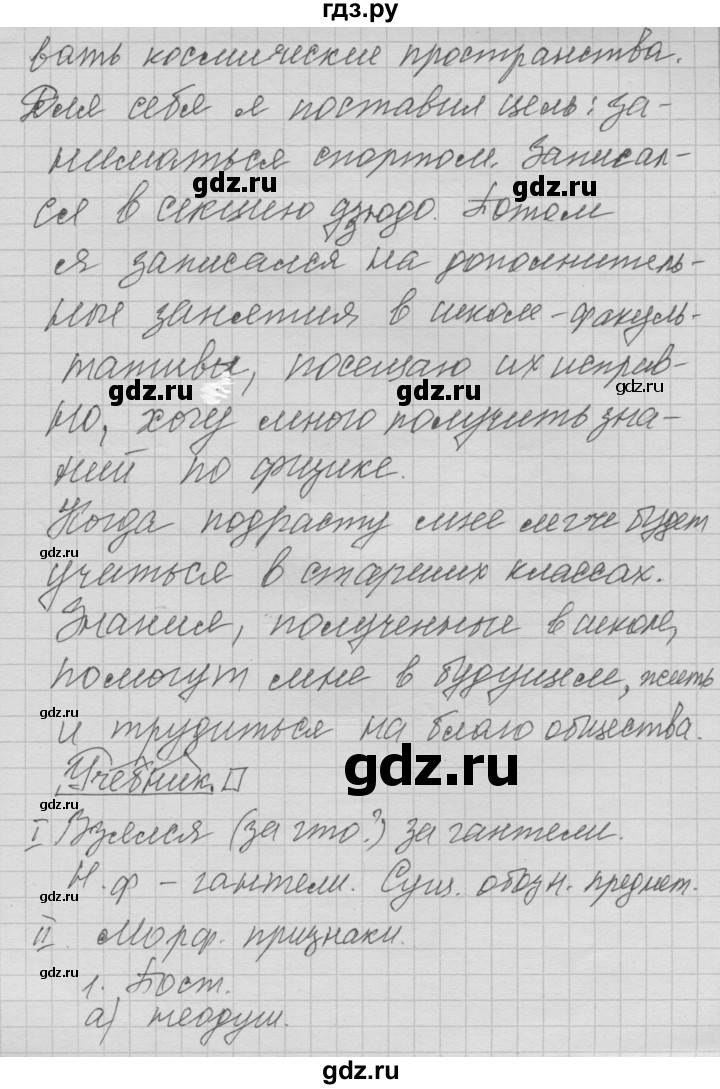 гдз.ру
вать космические пространства.
Для себя я поставил цель: за-
ниматься спортом. Записал-
gdz.ru gdz.ru
ся в секцию дзюдо. Потом
gdz.ru
я записался на дополнитель-
ные занятия в школе-факуль-
тативы, посещаю их исправ-
gdz.ru gdz.ru
но, хочу много получить зна-
ний по физике.
Когда подрасту мне легче будет
gdz.ru
учиться в старших классах.
Знания, полученные в школе,
помогут мне в будущем, жить
gdz.ru
и трудиться на благо общества.
gdz.ru
Учебник.
I Взялся (за что?) за гантели.
gdz.ru
Н.ф - гантели. Сущ. обозн. предмет.
II. Морф. признаки.
gdz.ru
1. Пост.
а) неодуш.
gdz.ru